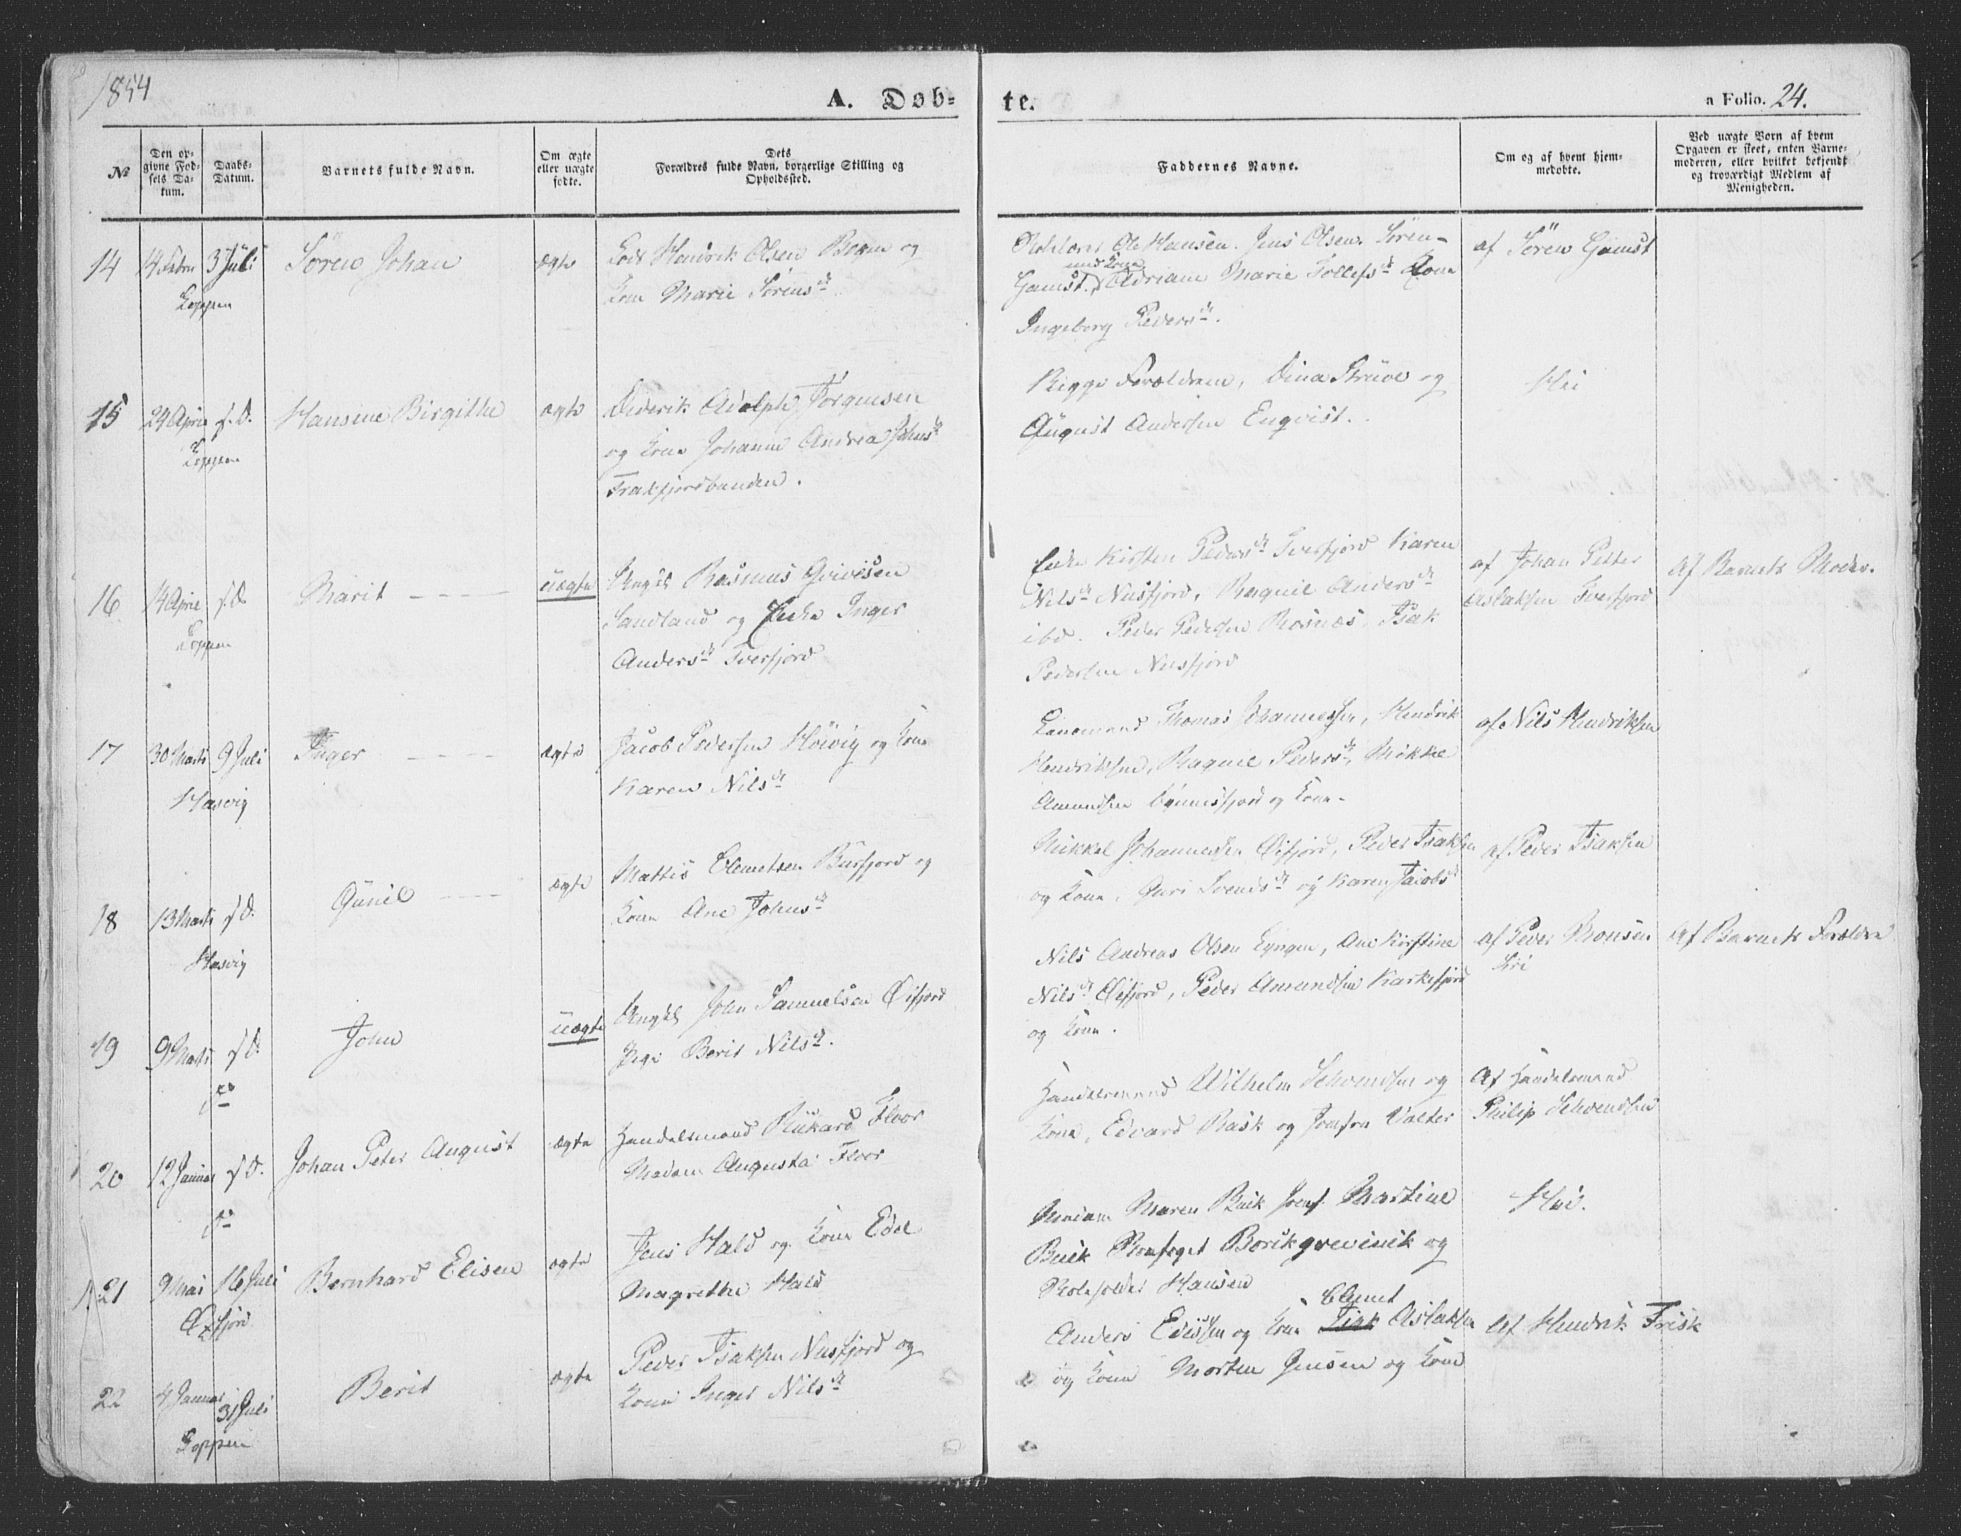 1854
A. Døb-
te.
a Folio. 24.
№
Den op-
givne Fød-
sels Da-
tum.
Daabs-
Datum.
Barnets fulde Navn.
Om ægte
eller uægte
fødte.
Dets
Forældres fulde Navn, borgerlige Stilling og
Opholdssted.
Faddernes Navne.
Om og af hvem hjem-
medøbte.
Ved uægte Børn af hvem
Opgaven er skeet, enten Barne-
moderen, eller hvilket bekjendt
og troværdigt Medlem af
Menigheden.
14 14 Febr 3 Juli Sören Johan ægte Hendrik Olsen og
Loppen
Kone Marie Sörensd
Ole Hansen. Jens Olsen. Sören
Gamst. med Kone Adriane Marie Tollefsd Kone
Ingeborg Pedersd.
af Sören Gamst
15 24 April s. D. Hansine Birgithe ægte Diderik Adolph Jörgensen
Loppen
og Kone Johanne Andrea Johnsd
Frakfjordbunden.
Begge Forældrene, Dina Struve og
August Andersen Enqvist.
Nei
16 14 April s. D. Marit uægte Ungk Rasmus Qvivesen
Loppen
Sandland og Enke Inger
Andersd Tverfjord
Enke Kirsten Pedersd Tverfjord Karen
Nilsd Nusfjord, Raquel Andersd
ibd. Peder Pedersen Rosnæs, Isak
Pedersen Nusfjord
af Johan Petter
Aslaksen Tverfjord
Af Barnets Moder.
17 30 Marts 9 Juli Inger ægte Jacob Pedersen Höivig og Kone
Hasvig
Karen Nilsd
Thomas Johannessen, Hendrik
Hendriksen, Raquel Pedersd, Mikkel
Amundsen og Kone
af Nils Hendriksen
18 13 Marts s D. Gunil ægte Mattis Clemetsen Burfjord og
Hasvig
Kone Ane Johnsd
Mikkel Johannessen Øifjord, Peder Isaksen
og Kone, Guri Svendsd og Karen Jacobsd
af Peder Isaksen
19 9 Marts s D. John uægte Ungk John Samuelsen Øifjord
Pige Berit Nilsd.
Nils Andreas Olsen Lyngen, Ane Kirstine
Nilsd Øifjord, Peder Amundsen Karkefjord
og Kone.
af Peder Monsen
Af Barnets Forældre
20 12 Januar s D. Johan Peter August ægte Handelsmand Rikard Floor
Madam Augusta Floor
Handelsmand Wilhelm Schvendsen og
Kone, Edvard Rask og Jomfru Valter
Af Handelsmand
Philip Schvendsen
21 9 Mai 16 Juli Bernhard Elisen ægte Jens Hald og Kone Edel
Øxfjord
Magrethe Hald
Madam Maren Buck Jomf. Martine
Buck Borchgrevinck og
Hansen
Nei.
22 4 Januar 31 Juli Berit ægte Peder Isaksen Nusfjord og
Loppen
Kone Inger Nilsd
Anders Edissen og Kone Clemet Aslaksen
og Kone Morten Jensen og Kone
Af Hendrik Frisk